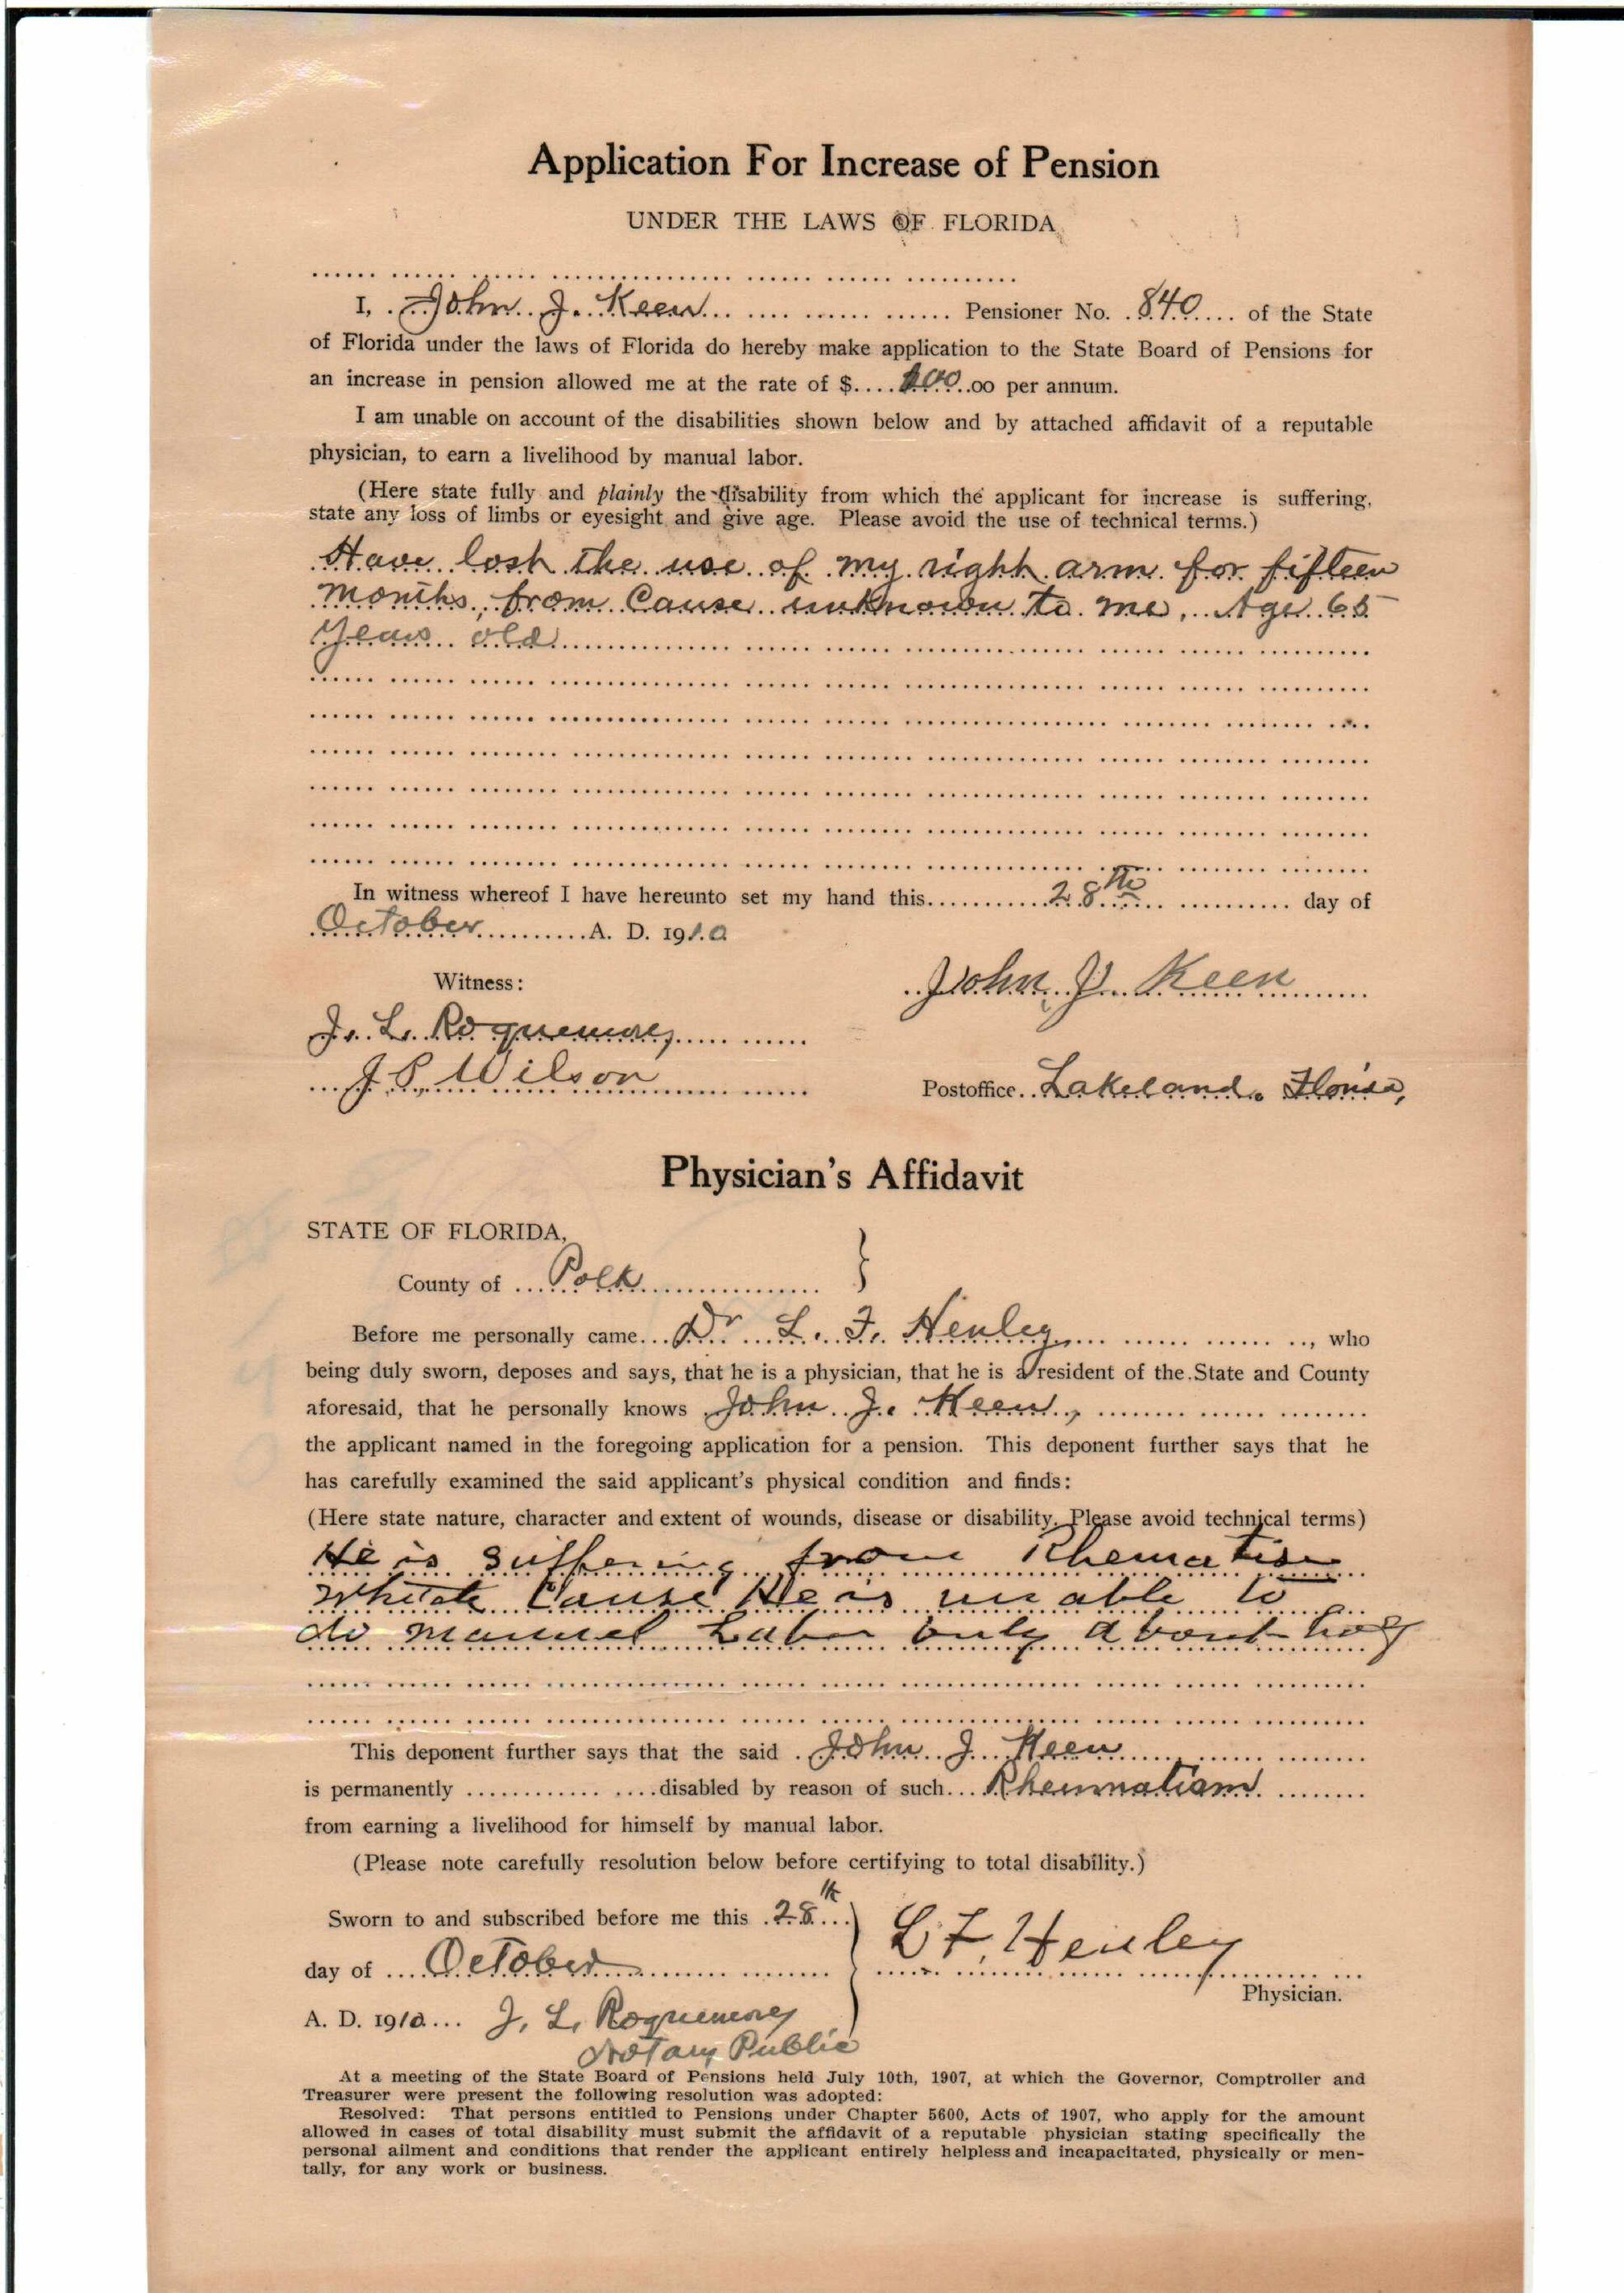 Application For Increase of Pension
UNDER THE LAWS OF FLORIDA
I, John J. Keen Pensioner No. 840 of the State
of Florida under the laws of Florida do hereby make application to the State Board of Pensions for
an increase in pension allowed me at the rate of $ 100.00 per annum.
I am unable on account of the disabilities shown below and by attached affidavit of a reputable
physician, to earn a livelihood by manual labor.
(Here state fully and plainly the disability from which the applicant for increase is suffering,
state any loss of limbs or eyesight and give age. Please avoid the use of technical terms.)
Have lost the use of my right arm for fifteen
months, from Cause unknown to me, Age 65
years old
In witness whereof I have hereunto set my hand this 28th day of
October A. D. 1910
Witness:
John J. Keen
J. L. Roquemore
J. P. Wilson
Postoffice Lakeland, Florida,
Physician's Affidavit
STATE OF FLORIDA,
County of Polk
Before me personally came Dr L. F. Henley, who
being duly sworn, deposes and says, that he is a physician, that he is a resident of the State and County
aforesaid, that he personally knows John J. Keen,
the applicant named in the foregoing application for a pension. This deponent further says that he
has carefully examined the said applicant's physical condition and finds:
(Here state nature, character and extent of wounds, disease or disability. Please avoid technical terms)
He is Suffering from Rhematism
Cause He is unable to
do manuel Labor only about half
This deponent further says that the said John J. Keen
is permanently disabled by reason of such Rheumatism
from earning a livelihood for himself by manual labor.
(Please note carefully resolution below before certifying to total disability.)
Sworn to and subscribed before me this 28th
day of October
L F. Henley
Physician.
A. D. 1910 J. L. Roquemore
Notary Public
At a meeting of the State Board of Pensions held July 10th, 1907, at which the Governor, Comptroller and
Treasurer were present the following resolution was adopted:
Resolved: That persons entitled to Pensions under Chapter 5600, Acts of 1907, who apply for the amount
allowed in cases of total disability must submit the affidavit of a reputable physician stating specifically the
personal ailment and conditions that render the applicant entirely helpless and incapacitated, physically or men-
tally, for any work or business.